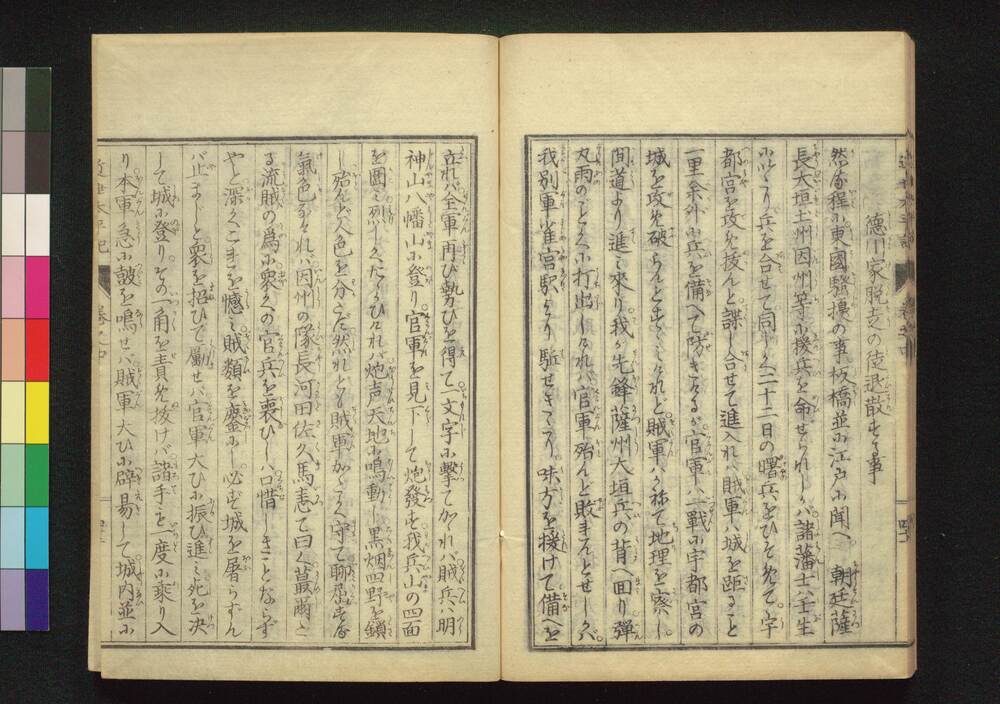 德川家脱走の徒退散する事
然る程に東國騒擾の事板橋並に江戸に聞へ 朝廷薩
長大垣土州因州等に援兵を命せられしかば諸藩士八壬生
により兵を合せて同しく二十二日の曙兵をひそめて宇
都宮を攻め抜んと諜し合せて進入れバ賊軍ハ城を距ること
一里余外に兵を備へて防ぎたるが官軍ハ一戰に宇都宮の
城を攻め破らんとすゝみけれど賊軍ハかねて地理を察し
間道より進ミ來り我が先鋒薩州大垣兵の背へ回り彈
丸雨のごとくに打出しけれバ官軍殆んど敗れんとせしかバ
我別軍雀宮駅より駈せきたり味方を援けて備へを
立れバ全軍再び勢ひを得て一文字に擊てかゝれバ賊兵ハ明
神山八幡山に登り官軍を見下して炮發す我兵山の四面
を圍ミ烈しくたゝかひけれバ炮声天地に鳴動し黒烟四野を鎖
し殆んど人色を分たず然れども賊軍かたく守て聊屈する
氣色なけれバ因州の隊長河田佐久馬恚て曰く蕞爾た
る流賊の爲に衆くの官兵を喪ひしハ口惜しきことならず
やと深くこれを憾ミ賊類を鏖にし必ず城を屠らずん
バ止まじと衆を招ひで勵せバ官軍大ひに振ひ進ミ死を决
して城に登りその一角を責め拔けバ諸手も一度に乘り入
り本軍急に皷を鳴せバ賊軍大ひに辟易して城内並に